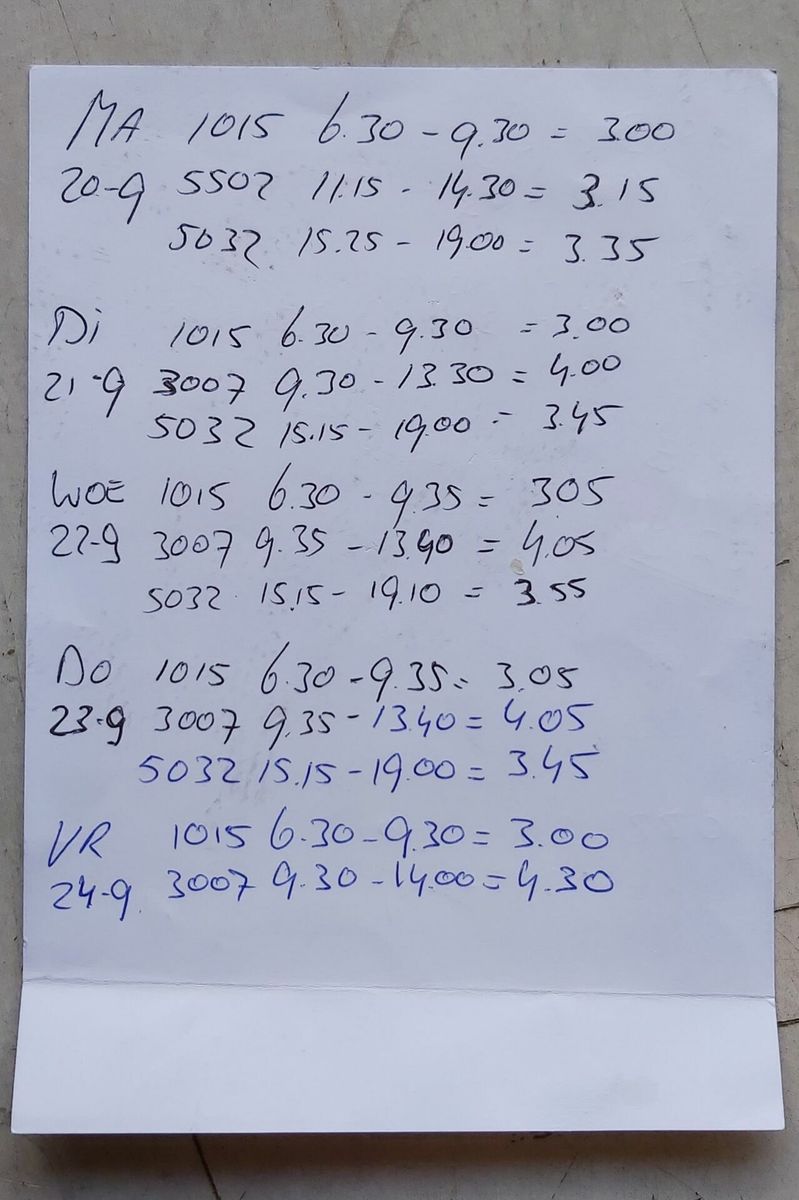 MA 1015 6.30 - 9.30 = 3.00
20-9 5502 11.15 - 14.30 = 3.15
5032 15.25 - 19.00 = 3.35
Di 1015 6.30 - 9.30 = 3.00
21-9 3007 9.30 - 13.30 = 4.00
5032 15.15 - 19.00 = 3.45
WOE 1015 6.30 - 9.35 = 305
22-9 3007 9.35 - 13.40 = 4.05
5032 15.15 - 19.10 = 3.55
DO 1015 6.30 - 9.35 = 3.05
23-9 3007 9.35 - 13.40 = 4.05
5032 15.15 - 19.00 = 3.45
VR 1015 6.30 - 9.30 = 3.00
24-9 3007 9.30 - 14.00 = 4.30